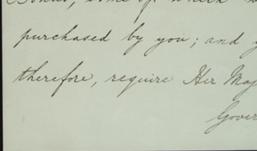 some of which
purchased by you; and
therefore, require Her Maj
Gover